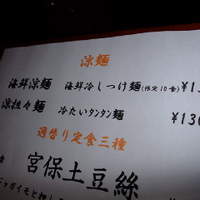 涼麺
海鮮涼麺 海鮮冷しつけ麺(限定10食) ¥1
涼担々麺 冷たいタンタン麺 ¥130
週替り定食三種
宮保土豆絲
ジャガイモと押し